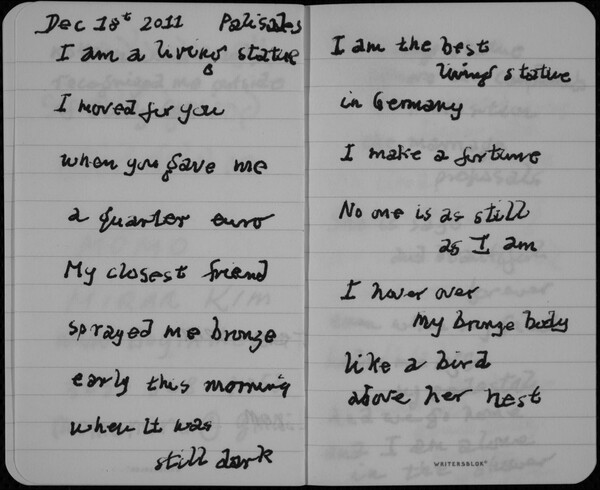 Dec 18th 2011 Palisades
I am a living statue
I moved for you
when you gave me
a quarter euro
My closest friend
sprayed me bronze
early this morning
when it was
still dark
I am the best
living statue
in Germany
I make a fortune
No one is as still
as I am
I hover over
my bronze body
like a bird
above her nest
WRITERSBLOK